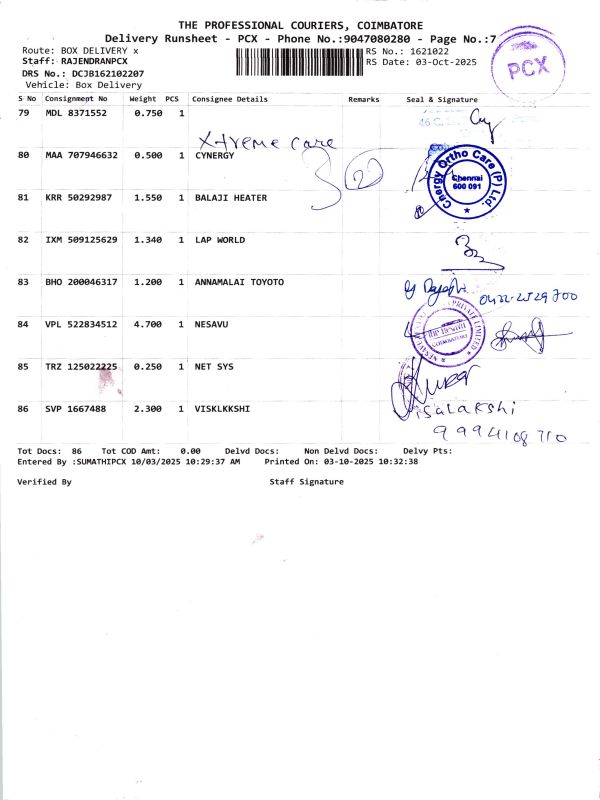 THE PROFESSIONAL COURIERS, COIMBATORE
Delivery Runsheet - PCX - Phone No.:9047080280 - Page No.:7
Route: BOX DELIVERY x RS No.: 1621022
Staff: RAJENDRANPCX RS Date: 03-Oct-2025
DRS No.: DCJB162102207
Vehicle: Box Delivery
PCX
S No Consignment No Weight PCS Consignee Details Remarks Seal & Signature
79 MDL 8371552 0.750 1
Xtreme care
80 MAA 707946632 0.500 1 CYNERGY
Cnergy Ortho Care (P) Ltd.
Chennai
600 091
81 KRR 50292987 1.550 1 BALAJI HEATER
82 IXM 509125629 1.340 1 LAP WORLD
83 BHO 200046317 1.200 1 ANNAMALAI TOYOTO
0422-2529700
84 VPL 522834512 4.700 1 NESAVU
85 TRZ 125022225 0.250 1 NET SYS
86 SVP 1667488 2.300 1 VISKLKKSHI
9994108710
Tot Docs: 86 Tot COD Amt: 0.00 Delvd Docs: Non Delvd Docs: Delvy Pts:
Entered By :SUMATHIPCX 10/03/2025 10:29:37 AM Printed On: 03-10-2025 10:32:38
Verified By Staff Signature